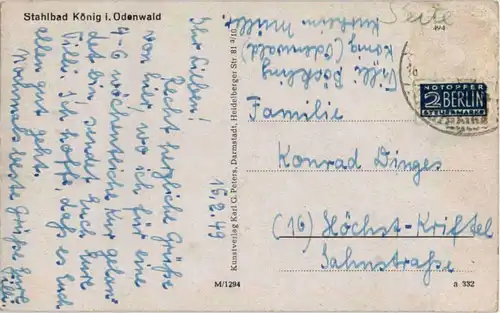 Stahlbad König i. Odenwald
16.9.49
Ihr Lieben!
Recht herzliche Grüße
von hier, wo ich für eine
4-6 wöchentliche Kur gelan-
det bin, sendet Euch Eure
Tilli. Ich hoffe, daß es Euch
allen gut geht.
Nochmals beste Grüße Eure
Tilli
Tilli
König (Odenwald)
Kurheim Müller
M/1294
Kunstverlag Karl G. Peters, Darmstadt, Heidelberger Str. 81 3/10
Seite
494
NOTOPFER
2 BERLIN
STEUERMARKE
Familie
Konrad Dinges
(16) Höchst-Kriftel
Bahnstraße
a 332